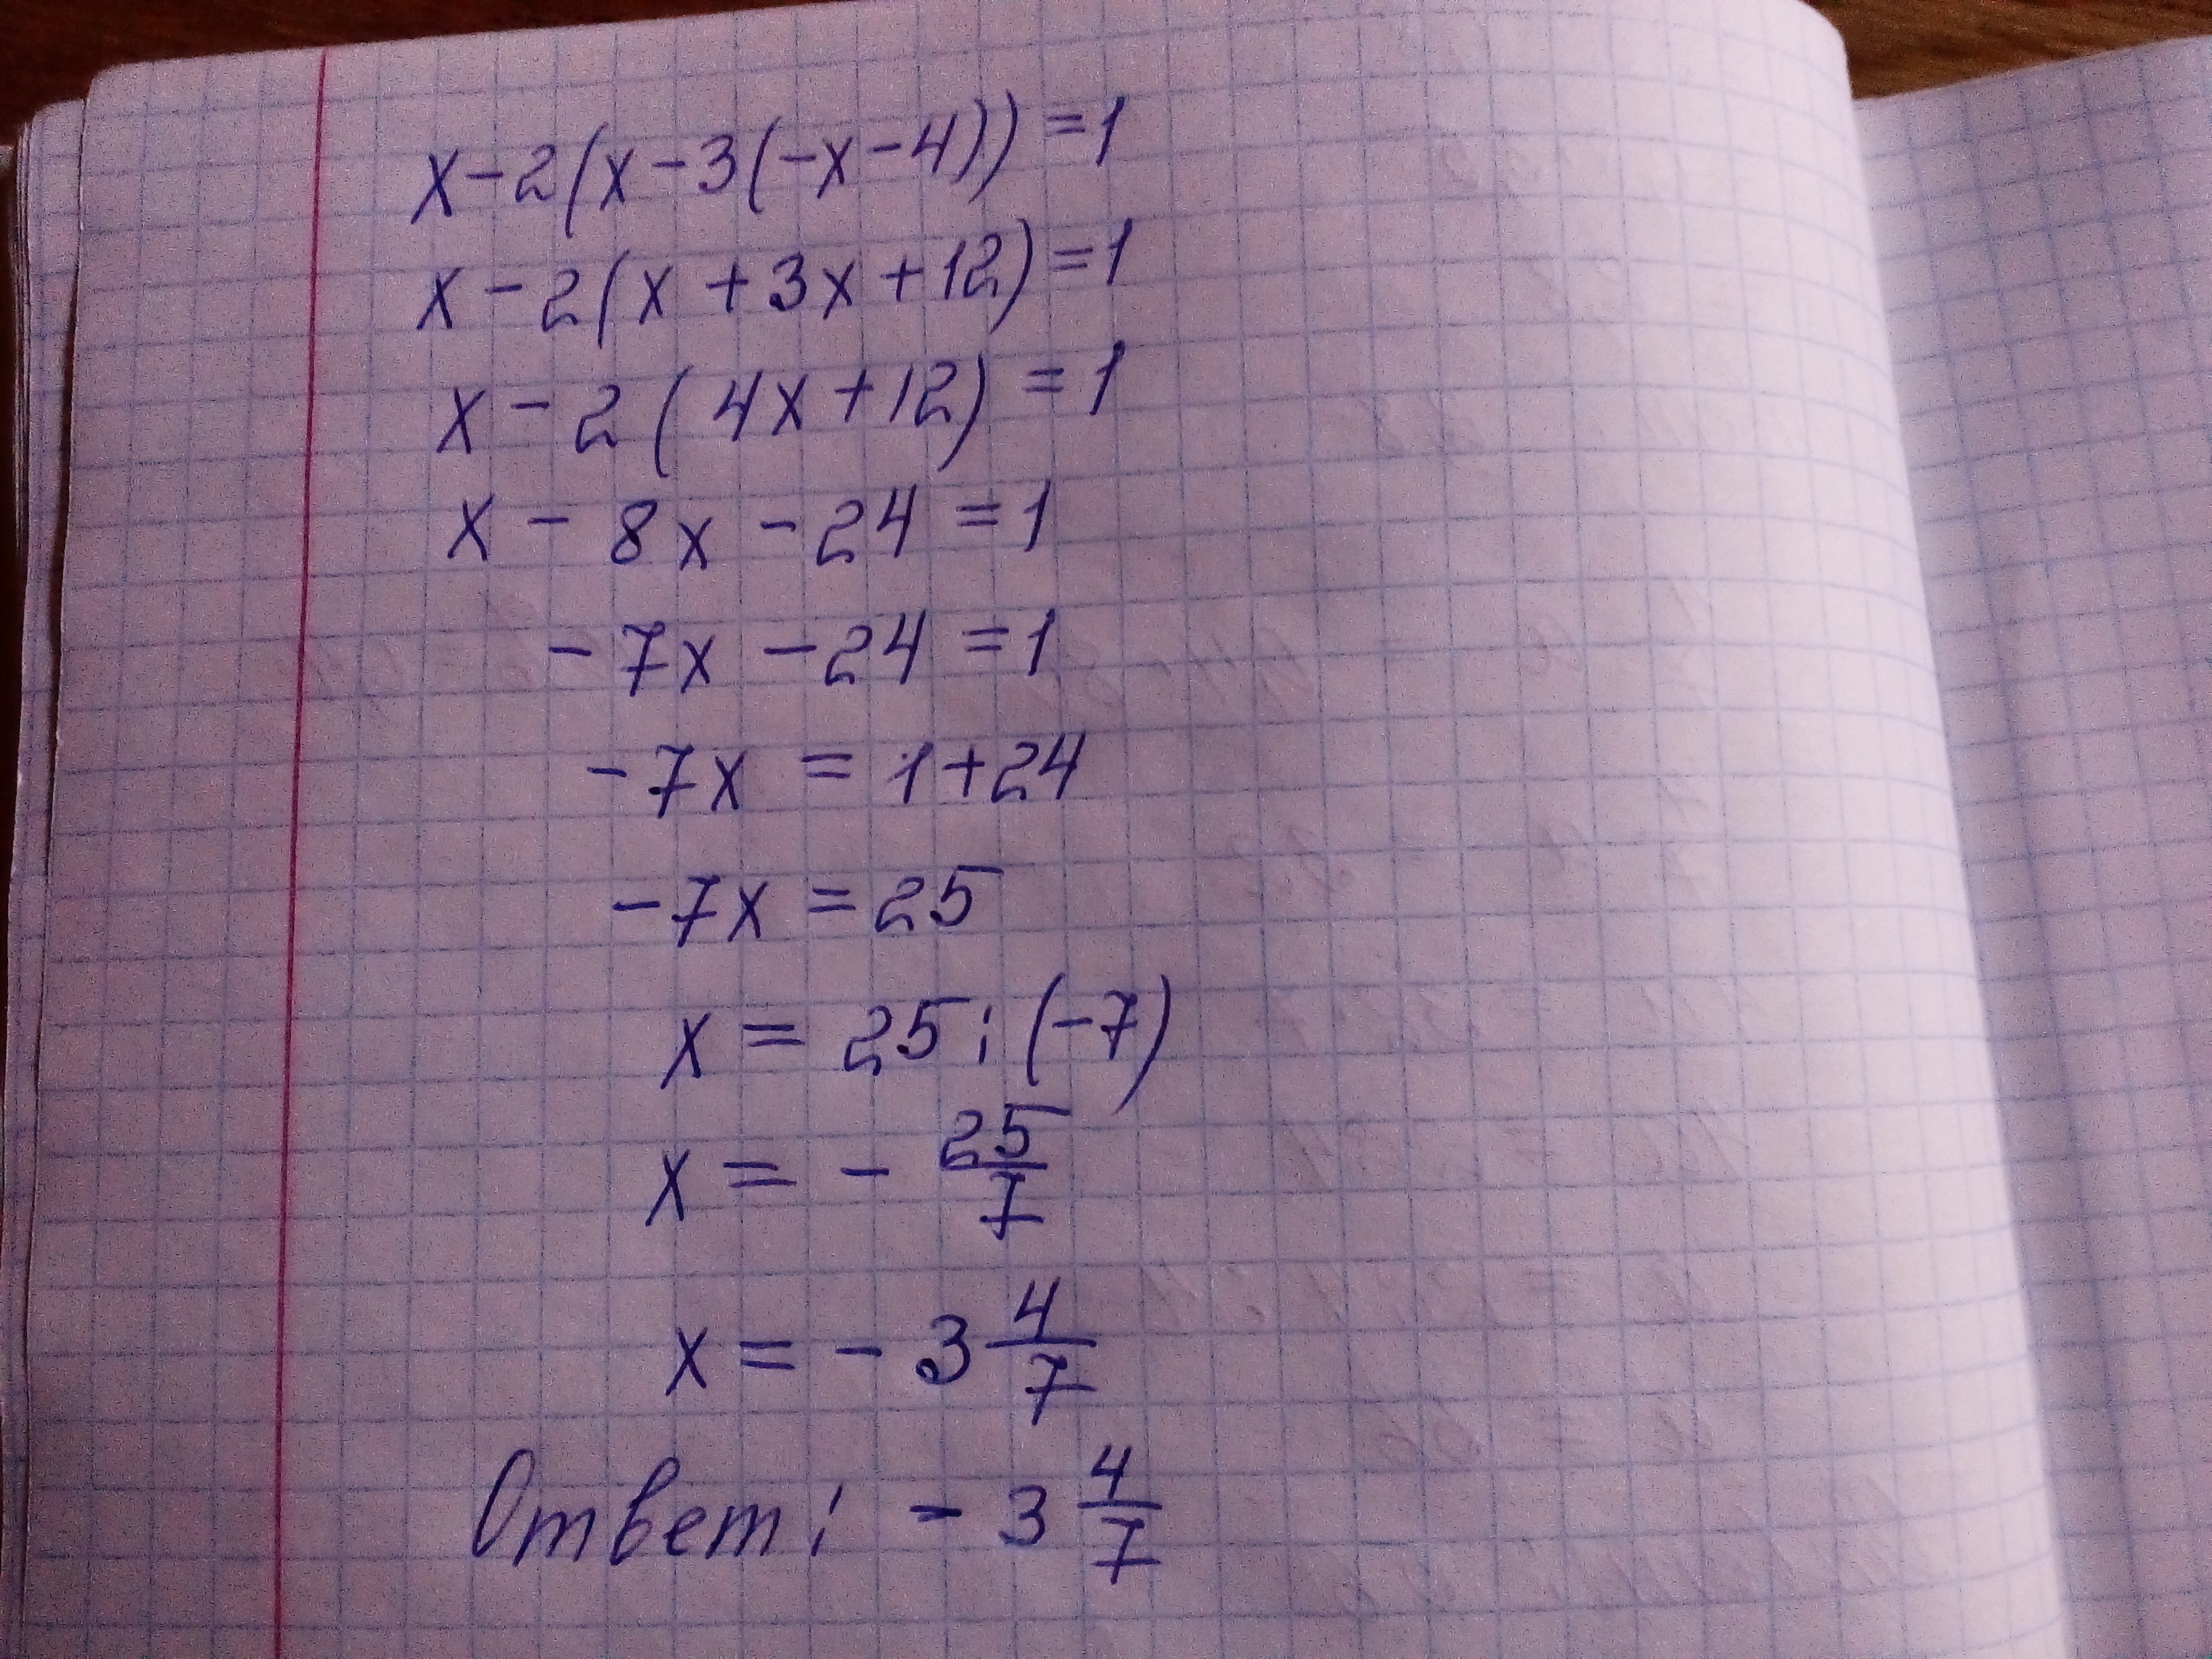 x-2(x-3(-x-4))=1
x-2(x+3x+12)=1
x-2(4x+12)=1
x-8x-24=1
-7x-24=1
-7x=1+24
-7x=25
x=25:(-7)
x=-25/7
x=-3 4/7
Ответ: -3 4/7